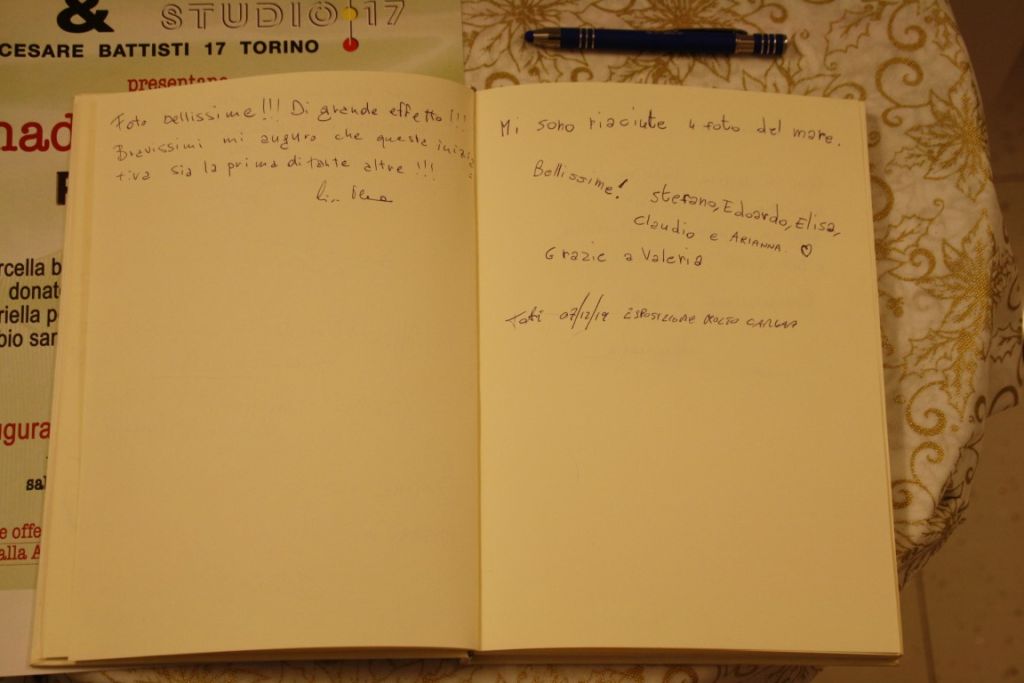 & STUDIO 17
CESARE BATTISTI 17 TORINO
presentano
nad
rcella b
donat
riella p
bio sar
ugura
sal
e offe
alla A
Foto bellissime!!! Di grande effetto!!!
Bravissimi mi auguro che questa inizia
tiva sia la prima di tante altre!!!
Mi sono riaciute 4 foto del mare.
Bellissime! Stefano, Edoardo, Elisa,
Claudio e ARIANNA. ♡
Grazie a Valeria
07/12/19 ESPOSIZIONE MOLTO